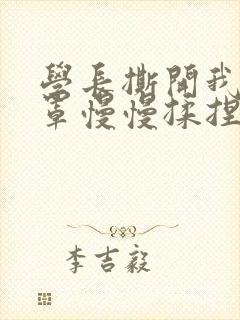 學長撕開我
罩慢慢揉捏
李吉毅